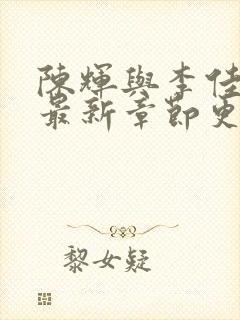 陳輝與李佳
最新章節更
黎女疑